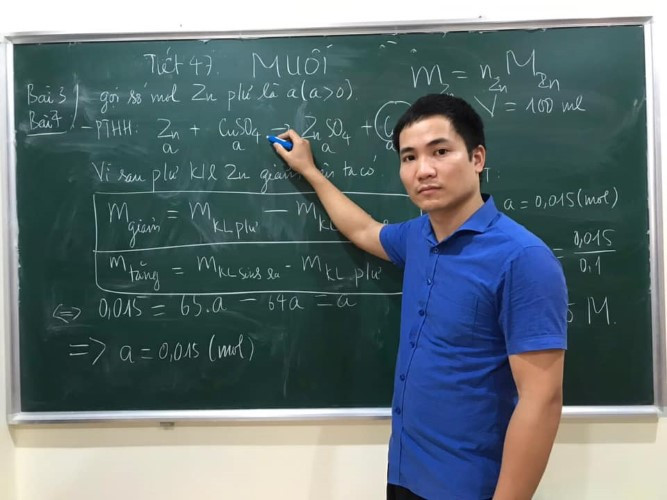 Tiết 47. MUỐI
m Zn = n Zn M Zn
V = 100 ml
Bài 3 gọi số mol Zn phứ là a (a > 0).
Bài 7 - PTHH: Zn + CuSO4 → ZnSO4 +
a a a a
Vì sau phứ KL Zn giảm ta có
m giảm = m KL phứ - m KL
m tăng = m KL sinh ra - m KL phứ
⇔ 0,015 = 65.a - 64a = a
=> a = 0,015 (mol)
a = 0,015 (mol)
= 0,015
0,1
M.